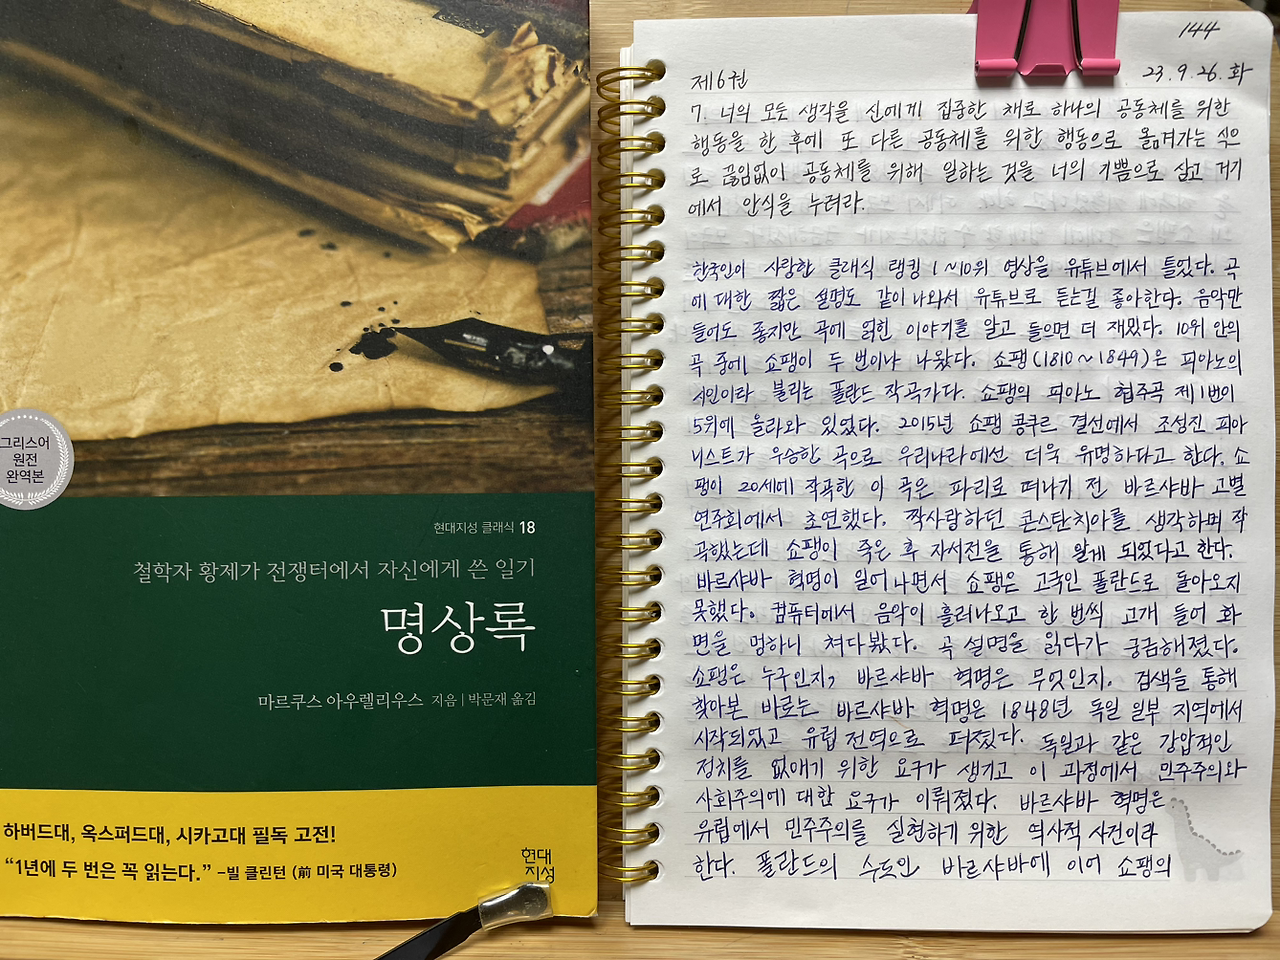 그리스어
원전
완역본
현대지성 클래식 18
철학자 황제가 전쟁터에서 자신에게 쓴 일기
명상록
마르쿠스 아우렐리우스 지음 | 박문재 옮김
하버드대, 옥스퍼드대, 시카고대 필독 고전!
“1년에 두 번은 꼭 읽는다.” –빌 클린턴 (前 미국 대통령)
현대
지성
144
23.9.26.화
제6권
7. 너의 모든 생각을 신에게 집중한 채로 하나의 공동체를 위한
행동을 한 후에 또 다른 공동체를 위한 행동으로 옮겨가는 식으
로 끊임없이 공동체를 위해 일하는 것을 너의 기쁨으로 삼고 거기
에서 안식을 누려라.
한국인이 사랑한 클래식 랭킹 1~10위 영상을 유튜브에서 틀었다. 곡
에 대한 짧은 설명도 같이 나와서 유튜브로 듣는걸 좋아한다. 음악만
들어도 좋지만 곡에 얽힌 이야기를 알고 들으면 더 재밌다. 10위 안의
곡 중에 쇼팽이 두 번이나 나왔다. 쇼팽(1810~1849)은 피아노의
시인이라 불리는 폴란드 작곡가다. 쇼팽의 피아노 협주곡 제1번이
5위에 올라와 있었다. 2015년 쇼팽 콩쿠르 결선에서 조성진 피아
니스트가 우승한 곡으로 우리나라에선 더욱 유명하다고 한다. 쇼
팽이 20세에 작곡한 이 곡은 파리로 떠나기 전 바르샤바 고별
연주회에서 초연했다. 짝사랑하던 콘스탄치아를 생각하며 작
곡했는데 쇼팽이 죽은 후 자서전을 통해 알게 되었다고 한다.
바르샤바 혁명이 일어나면서 쇼팽은 고국인 폴란드로 돌아오지
못했다. 컴퓨터에서 음악이 흘러나오고 한 번씩 고개 들어 화
면을 멍하니 쳐다봤다. 곡 설명을 읽다가 궁금해졌다.
쇼팽은 누구인지, 바르샤바 혁명은 무엇인지. 검색을 통해
찾아본 바로는 바르샤바 혁명은 1848년 독일 일부 지역에서
시작되었고 유럽 전역으로 퍼졌다. 독일과 같은 강압적인
정치를 없애기 위한 요구가 생기고 이 과정에서 민주주의와
사회주의에 대한 요구가 이뤄졌다. 바르샤바 혁명은
유럽에서 민주주의를 실현하기 위한 역사적 사건이라
한다. 폴란드의 수도인 바르샤바에 이어 쇼팽의